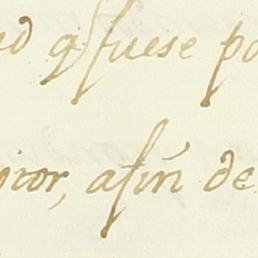 ad q fuese po
oror, afin de